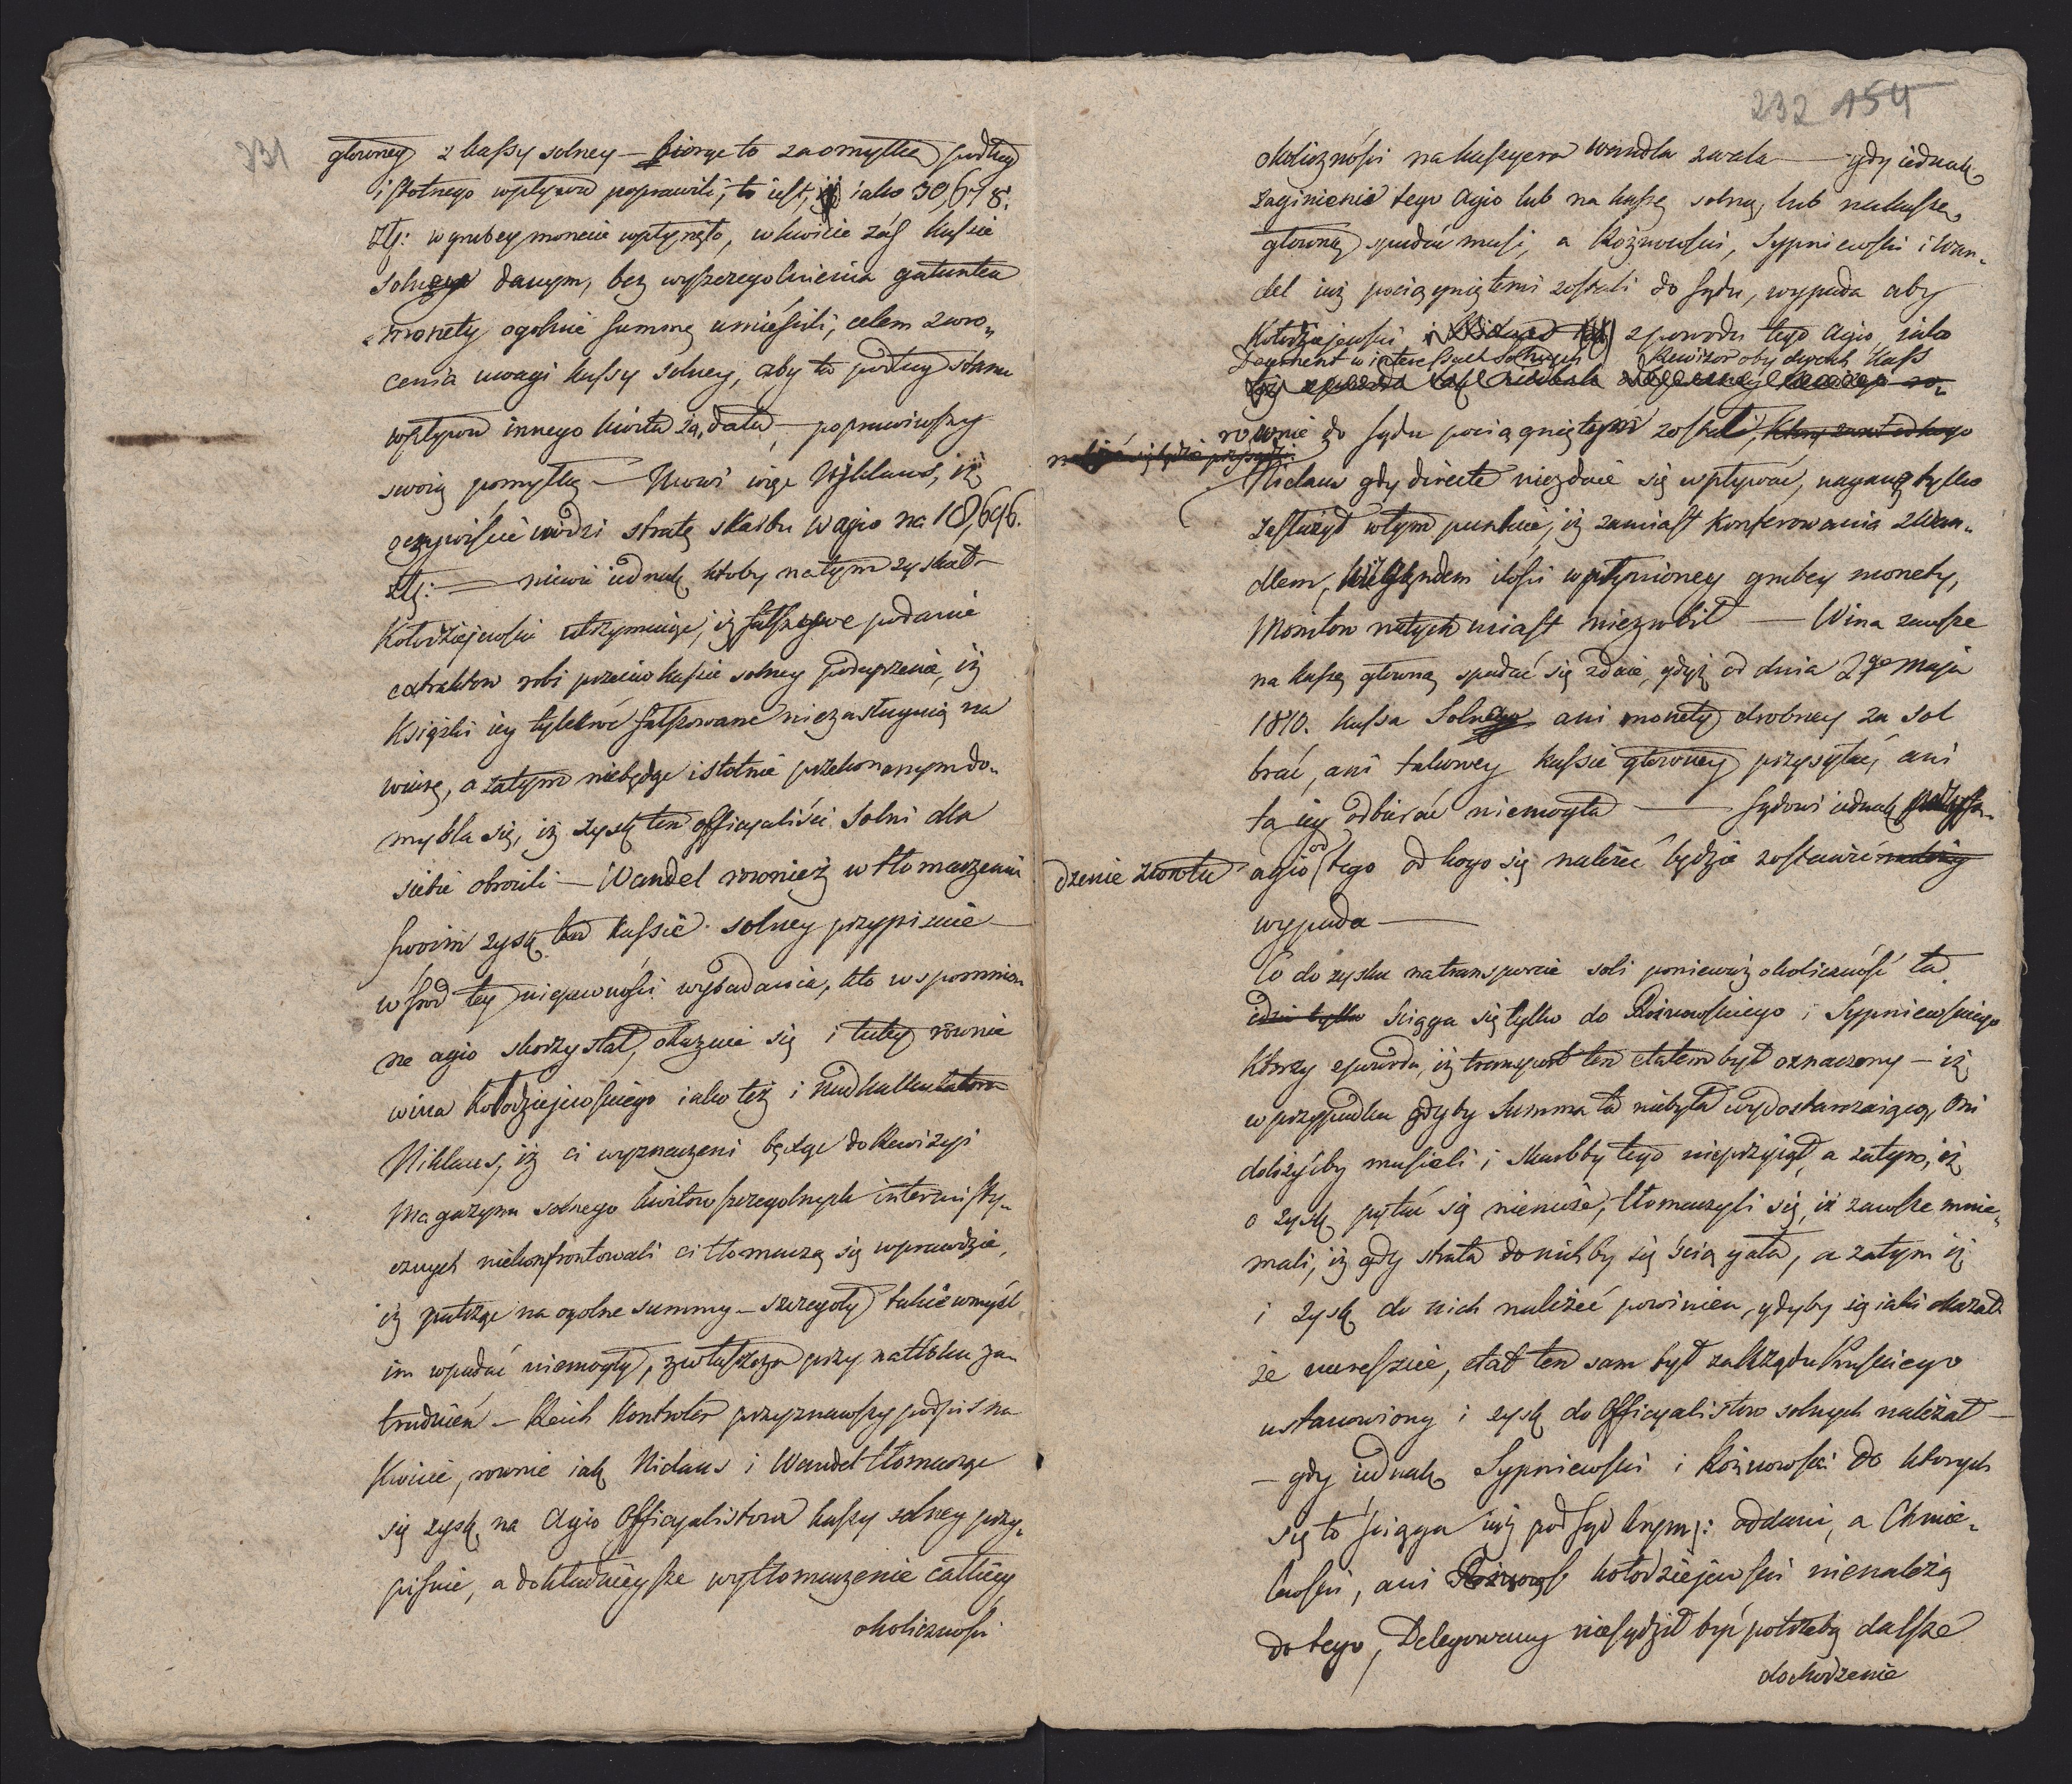 331
głowney z kassy solney — biorąc to za omyłkę podług
istotnego wpływu poprawili, to iest, iako 30,678.
Złt: w grubey monecie wpłynęło, w kwicie zaś kassie
solney danym, bez wyszczegolnienia gatunku
monety ogolnie summę umieścili, celem zwro„
cenia uwagi kassy solney, aby to podług stanu
wpływu innego kwitu żądała, poprawiwszy
swoią pomyłkę — Mowi więc Niklaus, iż
oczywiście widzi stratę skarbu w agio na 18,696.
Złt: — niewie iednak ktoby na tym zyskał —
Kołodziejewski utrzymuie, iż fałszywe podanie
extraktow robi przeciw kassie solney podeyrzenie, iż
Książki iey tylekroć fałszowane niezasługuią na
wiarę, a zatym niebędąc istotnie przekonanym do„
myśla się, iż zysk ten officyaliści Solni dla
siebie obrocili — Wandel rownież w tłomaczeniu
swoim zysk ten kassie solney przypisuie —
wśrod tey niepewności wybadania, kto wspomnio
ne agio skorzystał, okazuie się i tutey rownie
wina Kołodziejewskiego iako też i Nadkalkulatora
Niklaus, iż ci wyznaczeni będąc do Rewizyi
Magazynu solnego kwitow szczegolnych interimisty„
cznych niekonfrontowali ci tłomaczą się wprawdzie,
iż patrząc na ogolne summy — szczegoły takie w myśl
im wpadać niemogły, zwłaszcza przy natłoku za„
trudnień — Reich Kontroler przyznawszy podpis na
Kwicie, rownie iak Niclaus i Wandel tłomacząc
się zysk na Agio Officyalistow kassy solney przy„
pisuie, a dokładnieysze wytłomaczenie całkiey
okoliczności
232 154
okoliczności na kassyera Wandla zwala — gdy iednak
zaginienie tego Agio lub na kassę solną, lub na kassę
głowną spadać musi, a Rożnowski, Sypniewski i Wan„
del iuż pociągniętemi zostali do sądu, wypada aby
Kołodziejewski z powodu tego Agio, iako
Decernent w interessach solnych Rewizor obydwoch kass
rownie do sądu pociągniętym został, ktory zwrot od kogo
należeć się będzie przysądzi.
Niclaus gdy directe niezdaie się wpływać, naganę tylko
zasłużył w tym punkcie, iż zamiast konferowania z Wan„
dlem, względem ilości wpłynioney grubey monety,
Monitow natychmiast niezrobił — Wina zawsze
na kassę głowną spadać się zdaie, gdyż od dnia 2go Maja
1810. kassa Solna ani monety drobney za sol
brać, ani takowey kassie głowney przysyłać, ani
ta iey odbierać niemogła — Sądowi iednak przysą„
dzenie zwrotu agio od tego od kogo się należeć będzie zostawić należy
wypada —
Co do zysku na transporcie soli ponieważ okoliczność ta
ściąga się tylko do Rożnowskiego i Sypniewskiego
Ktorzy z powodu, iż transport ten etatem był oznaczony — iż
w przypadku gdyby Summa ta niebyła wydostarczaiącą, Oni
dołożyćby musieli i Skarbby tego nieprzyiął, a zatym, iż
o zysk pytać się niemoże, tłomaczyli się, iż zawsze mnie„
mali, iż gdy strata do nich by się ściągała, a zatym iż
i zysk do nich należeć powinien, gdyby się iaki okazał
że nareszcie, etat ten sam był za Rządu Pruskiego
ustanowiony i zysk do Officyalistow solnych należał —
— gdy iednak Sypniewski i Rożnowski do ktorych
się to ściąga iuż pod sąd krym: oddani, a Chmie„
lewski, ani Kołodziejewski nienależą
do tego, Delegowany niesądził być potrzebą dalsze
dochodzenie